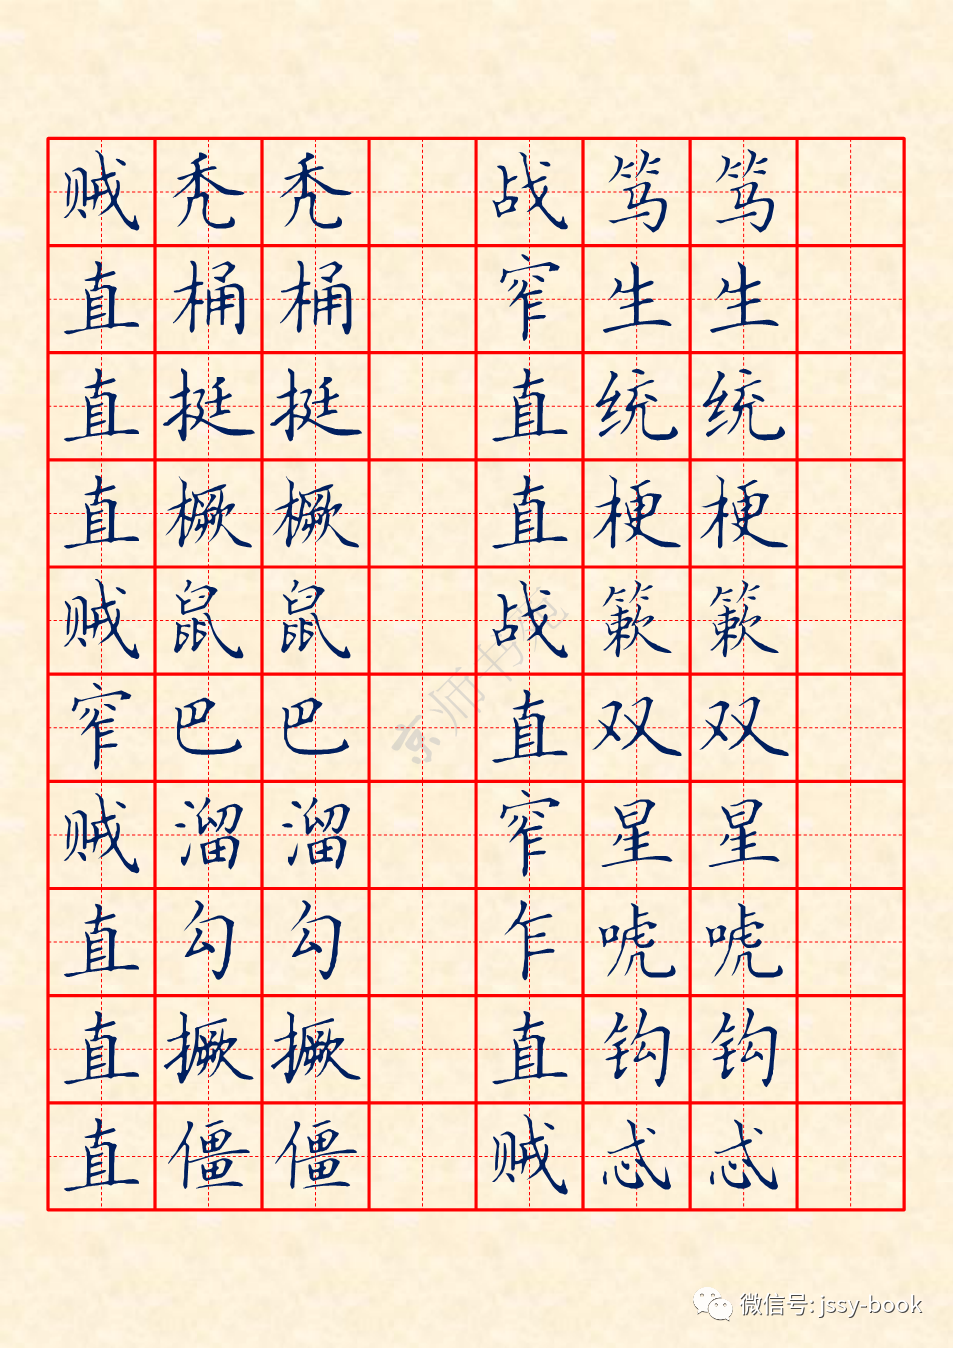 贼秃秃 战笃笃
直桶桶 窄生生
直挺挺 直统统
直橛橛 直梗梗
贼鼠鼠 战簌簌
窄巴巴 直双双
贼溜溜 窄星星
直勾勾 乍唬唬
直撅撅 直钩钩
直僵僵 贼忒忒
京师书苑
微信号: jssy-book